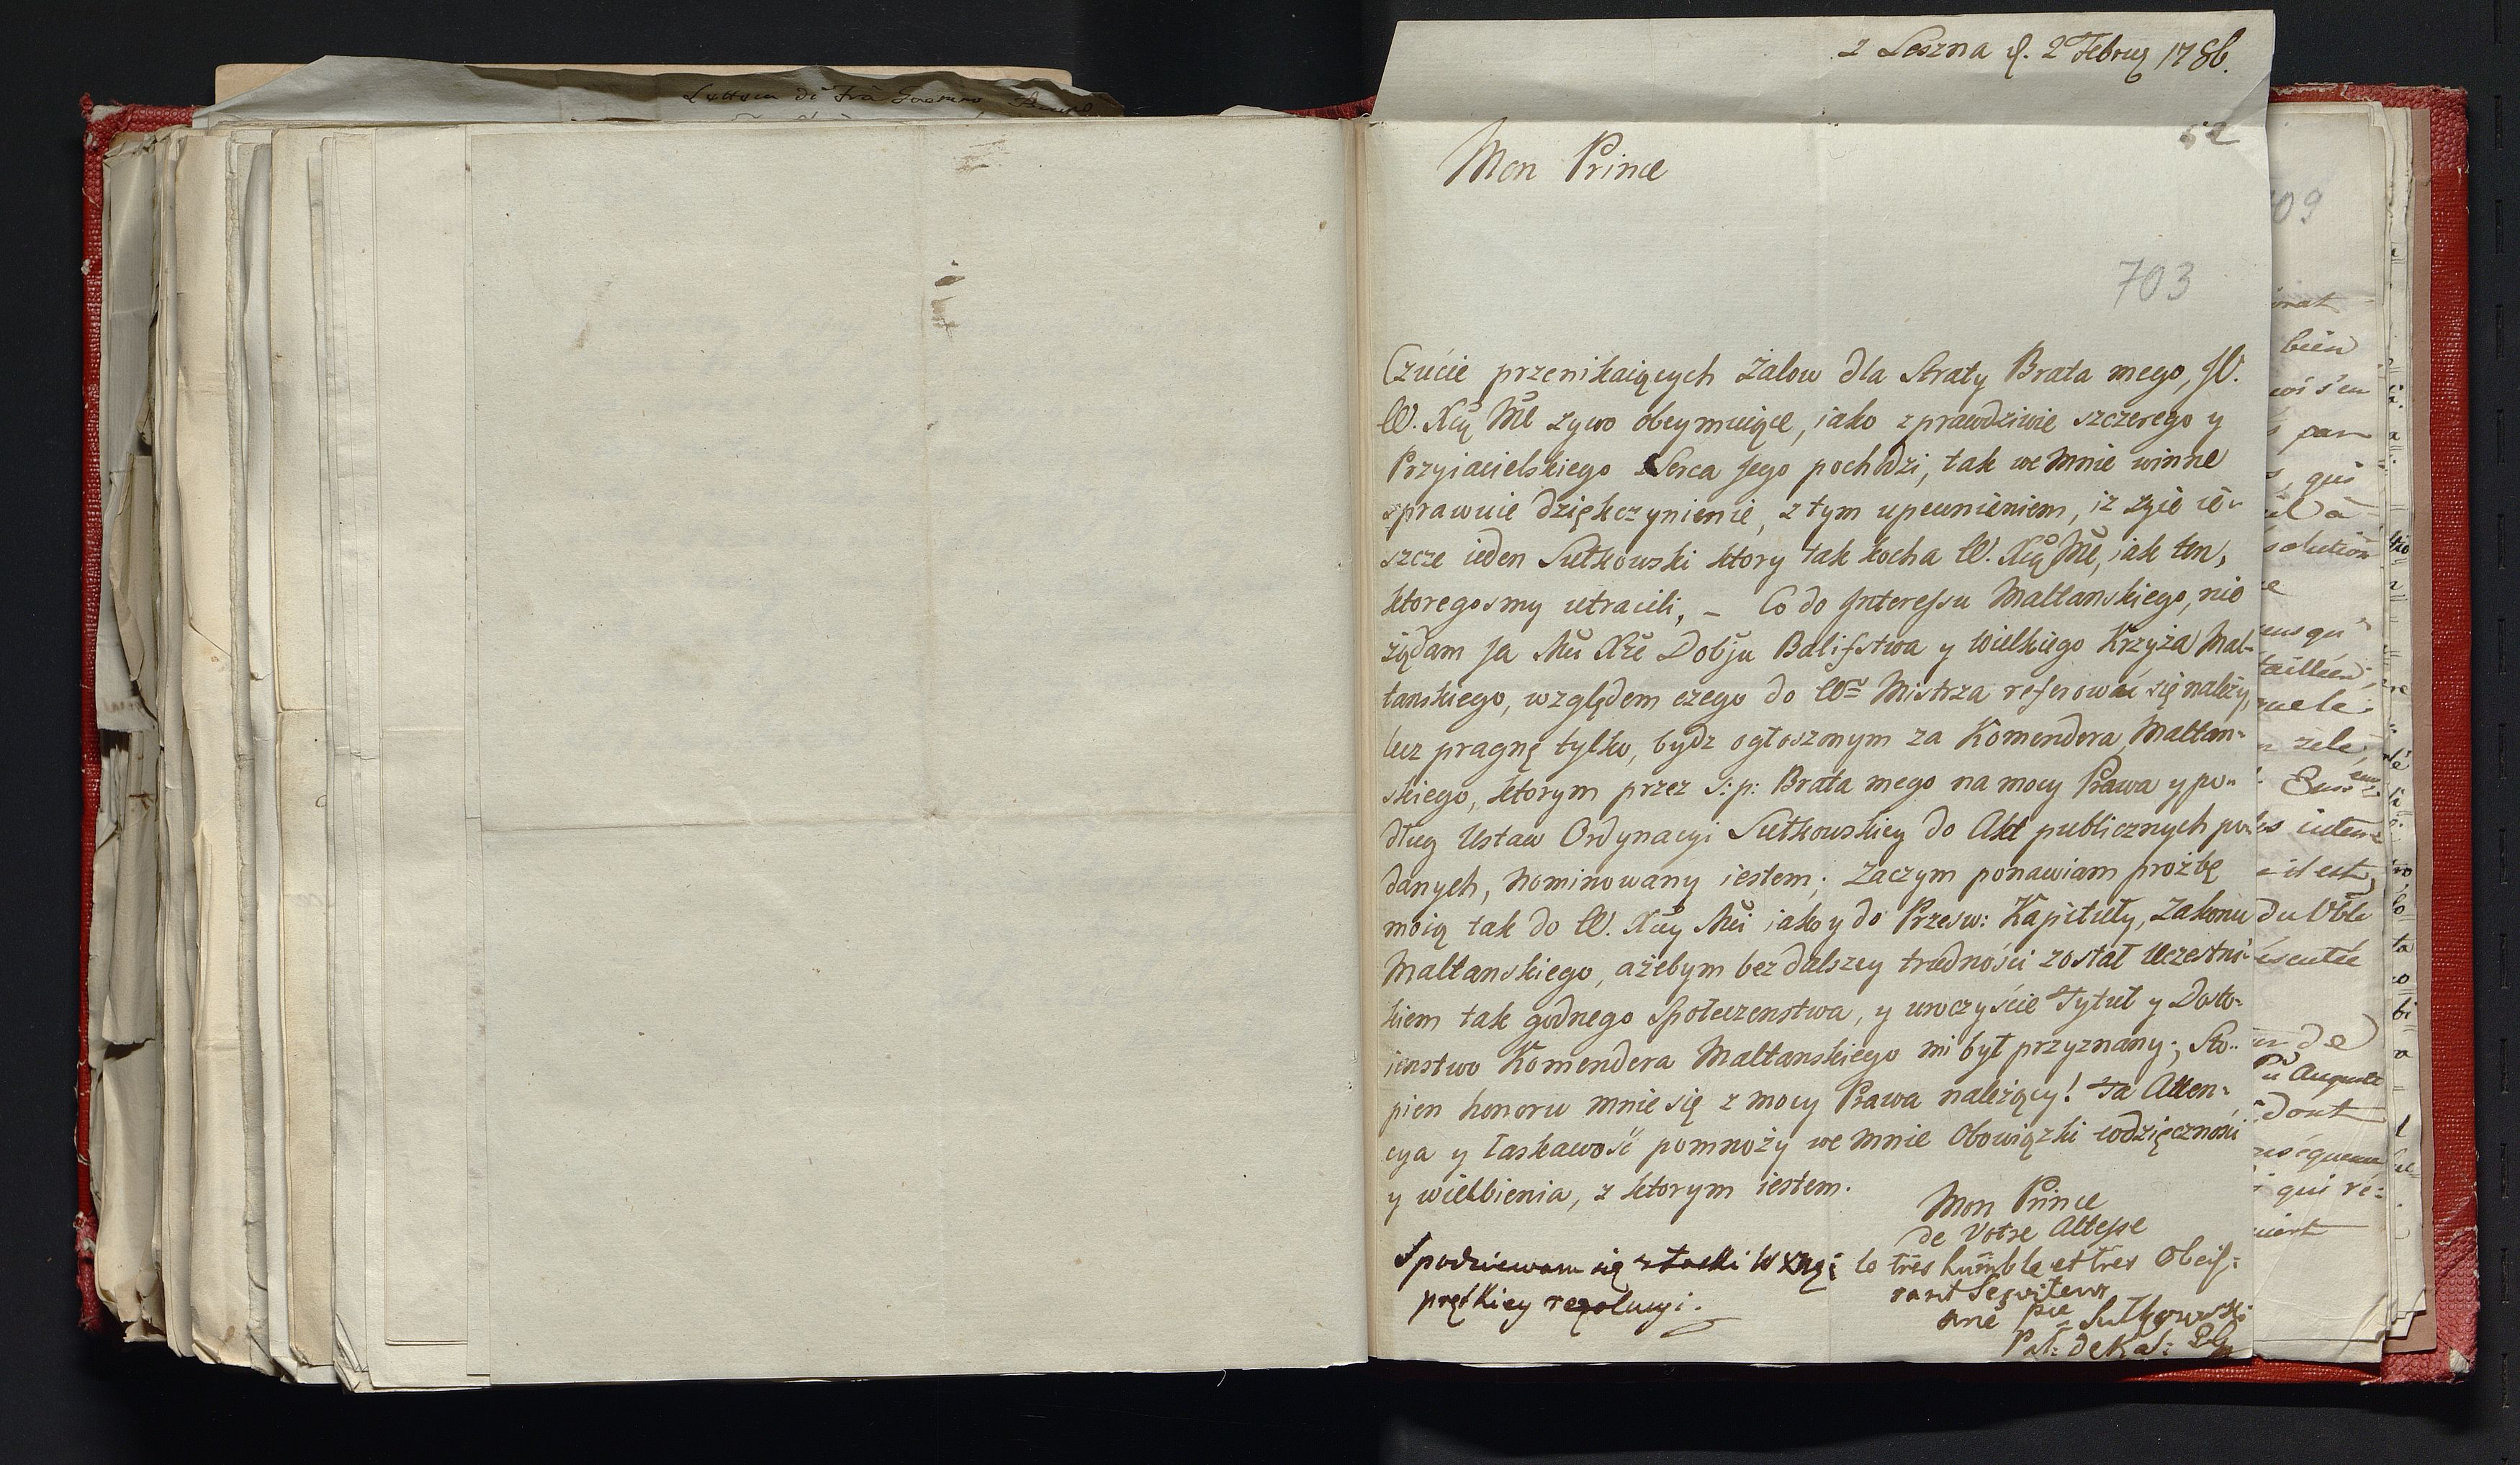 Lettera di frà
z Leszna d. 2 Februa 1786.
52
Mon Prince
703
Czucie przenikaiących żalow dla straty Brata mego, JO.
W. Xcy Mć żywo obeymuiące, iako z prawdziwie szczerego y
Przyiacielskiego Serca Jego pochodzi, tak we mnie winne
sprawuie dziękczynienie, z tym upewnieniem, iż żyie ie-
szcze ieden Sułkowski ktory tak kocha W. Xcą Mć, iak ten,
ktoregosmy utracili, – Co do Interessu Maltanskiego, nie
żądam ja Mć Xże Dobju Balifstwa y Wielkiego Krzyża Mal-
tanskiego, względem czego do Wo Mistrza referować się należy,
lecz pragnę tylko, bydz ogłoszonym za Komendera Maltan-
skiego, ktorym przez s: p: Brata mego na mocy Prawa y po-
dług Ustaw Ordynacyi Sułkowskiey do Akt publicznych po-
danych, nominowany iestem; Zaczym ponawiam proźbę
moią tak do W. Xcy Mci iako y do Przesw: Kapituły, Zakonu
Maltanskiego, ażebym bez dalszey trudności został Uczestni-
kiem tak godnego Społeczenstwa, y uroczyście Tytuł y Dosto-
ienstwo Komendera Maltanskiego mi był przyznany; Sto-
pien honoru mnie się z mocy Prawa należący! Ta Atten-
cya y Łaskawość pomnoży we mnie Obowiązki wdzięczności
y wielbienia, z ktorym iestem.
Mon Prince
de Votre Altesse
le très humble et très obeis-
sant Serviteur
Spodziewam się z łaski W Xcy
prętkiey rezolucyi.
Pce Sułkowski
Pal: de Kal:
109
bien
par
qui
zele
il est
August
dont
qui re: